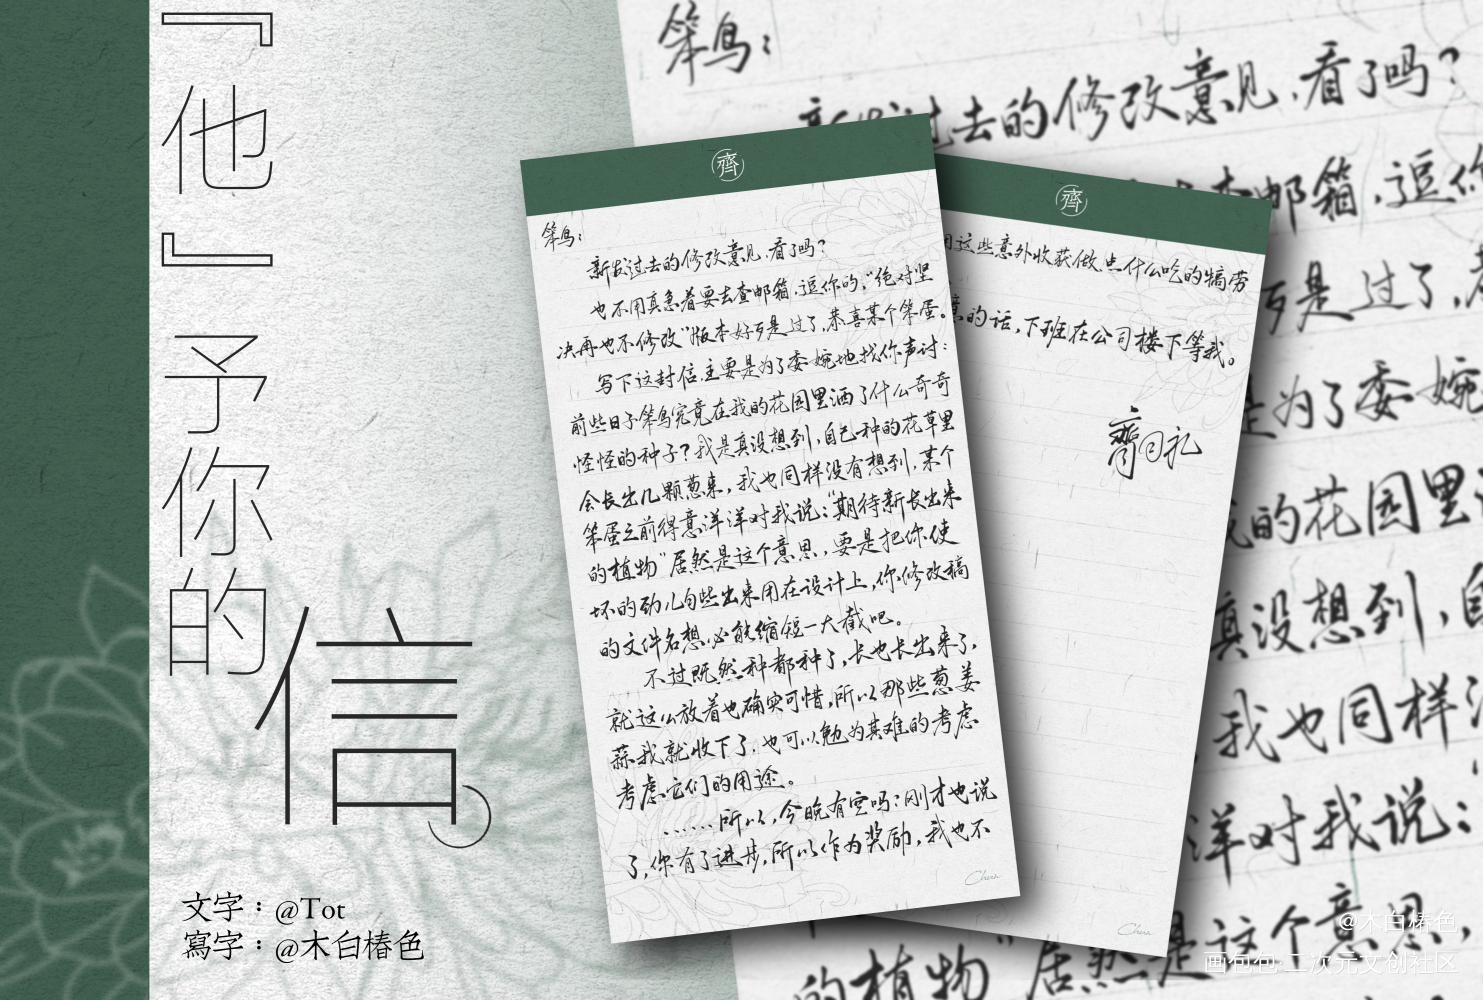 『他』予你的信
文字：@Tot
寫字：@木白椿色
齊
笨鸟：
新发过去的修改意见，看了吗？
也不用真急着要去查邮箱，逗你的，“绝对坚
决再也不修改”版本好歹是过了，恭喜某个笨蛋。
写下这封信，主要是为了委婉地找你声讨：
前些日子笨鸟究竟在我的花园里洒了什么奇奇
怪怪的种子？我是真没想到，自己种的花草里
会长出几颗葱来，我也同样没有想到，某个
笨蛋之前得意洋洋对我说：“期待新长出来
的植物”居然是这个意思，要是把你使
坏的劲儿匀些出来用在设计上，你修改稿
的文件名想必能缩短一大截吧。
不过既然种都种了，长也长出来了，
就这么放着也确实可惜，所以那些葱姜
蒜我就收下了，也可以勉为其难的考虑
考虑它们的用途。
……所以，今晚有空吗？刚才也说
了，你有了进步，所以作为奖励，我也不
Chen
齊
用这些意外收获做点什么吃的犒劳
意的话，下班在公司楼下等我。
齊司礼
Chen
笨鸟：
新发过去的修改意见，看了吗？
查邮箱，逗你
歹是过了，恭
是为了委婉
我的花园里洒
真没想到，自
，我也同样
洋对我说：
的植物”居然是这个意思，
@木白椿色
画包包·二次元文创社区